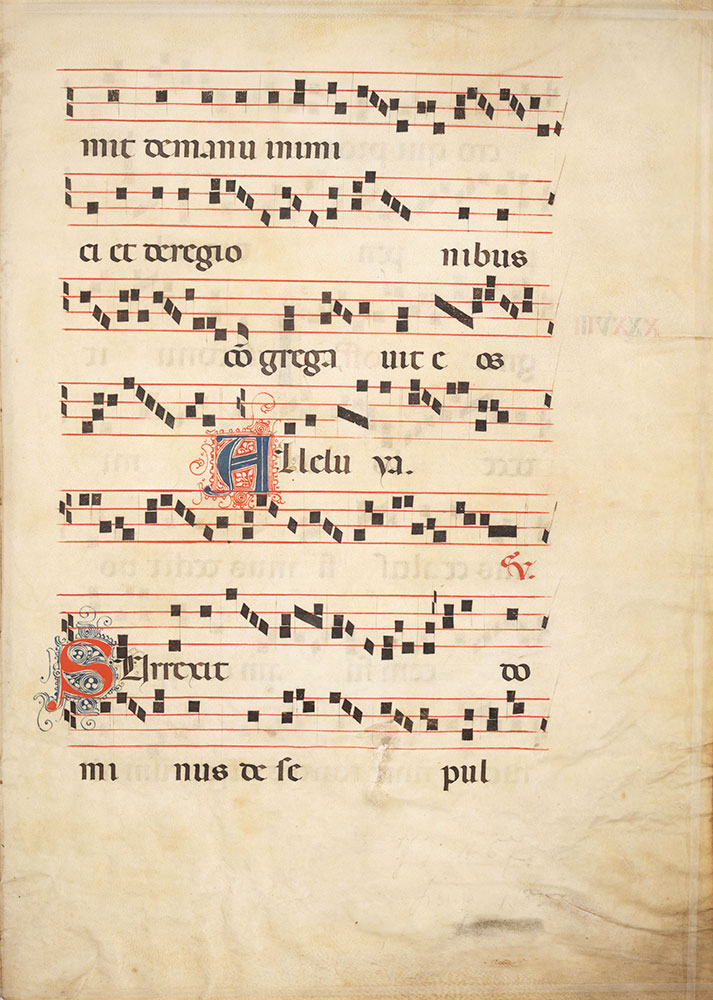 mit demanu inimi
ci et deregio nibus
cō grega uit e os
Allelu ya.
℣.
SUrrexit do
mi nus de se pul